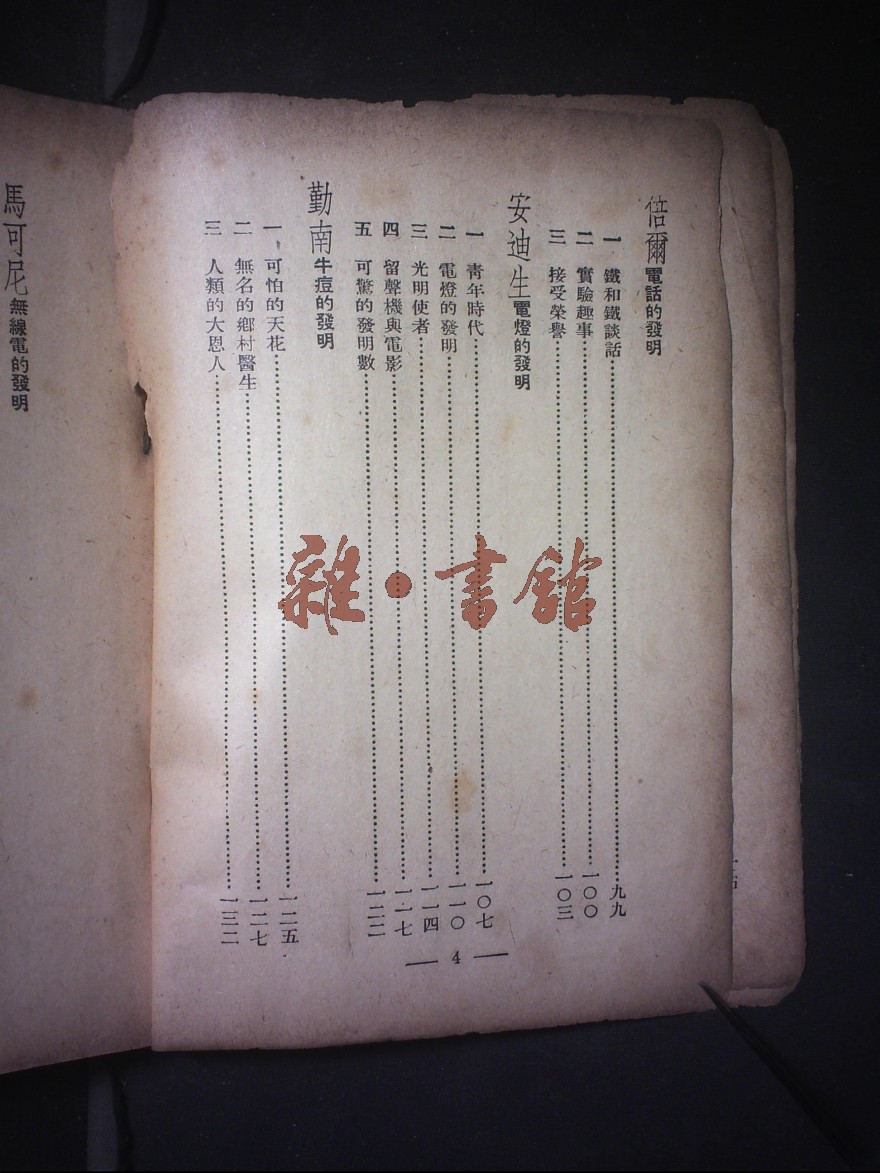 倍爾電話的發明
一 鐵和鐵談話……九九
二 實驗趣事……一〇〇
三 接受榮譽……一〇三
安迪生電燈的發明
一 青年時代……一〇七
二 電燈的發明……一一〇
三 光明使者……一一四
四 留聲機與電影……一一七
五 可驚的發明數……一二二
勤南牛痘的發明
一 可怕的天花……一二五
二 無名的鄉村醫生……一二七
三 人類的大恩人……一三二
— 4 —
馬可尼無線電的發明
雜·書館